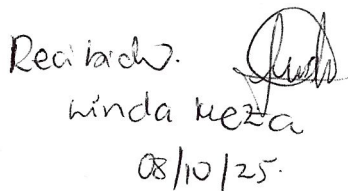 Recibido.
Linda Meza
08/10/25.